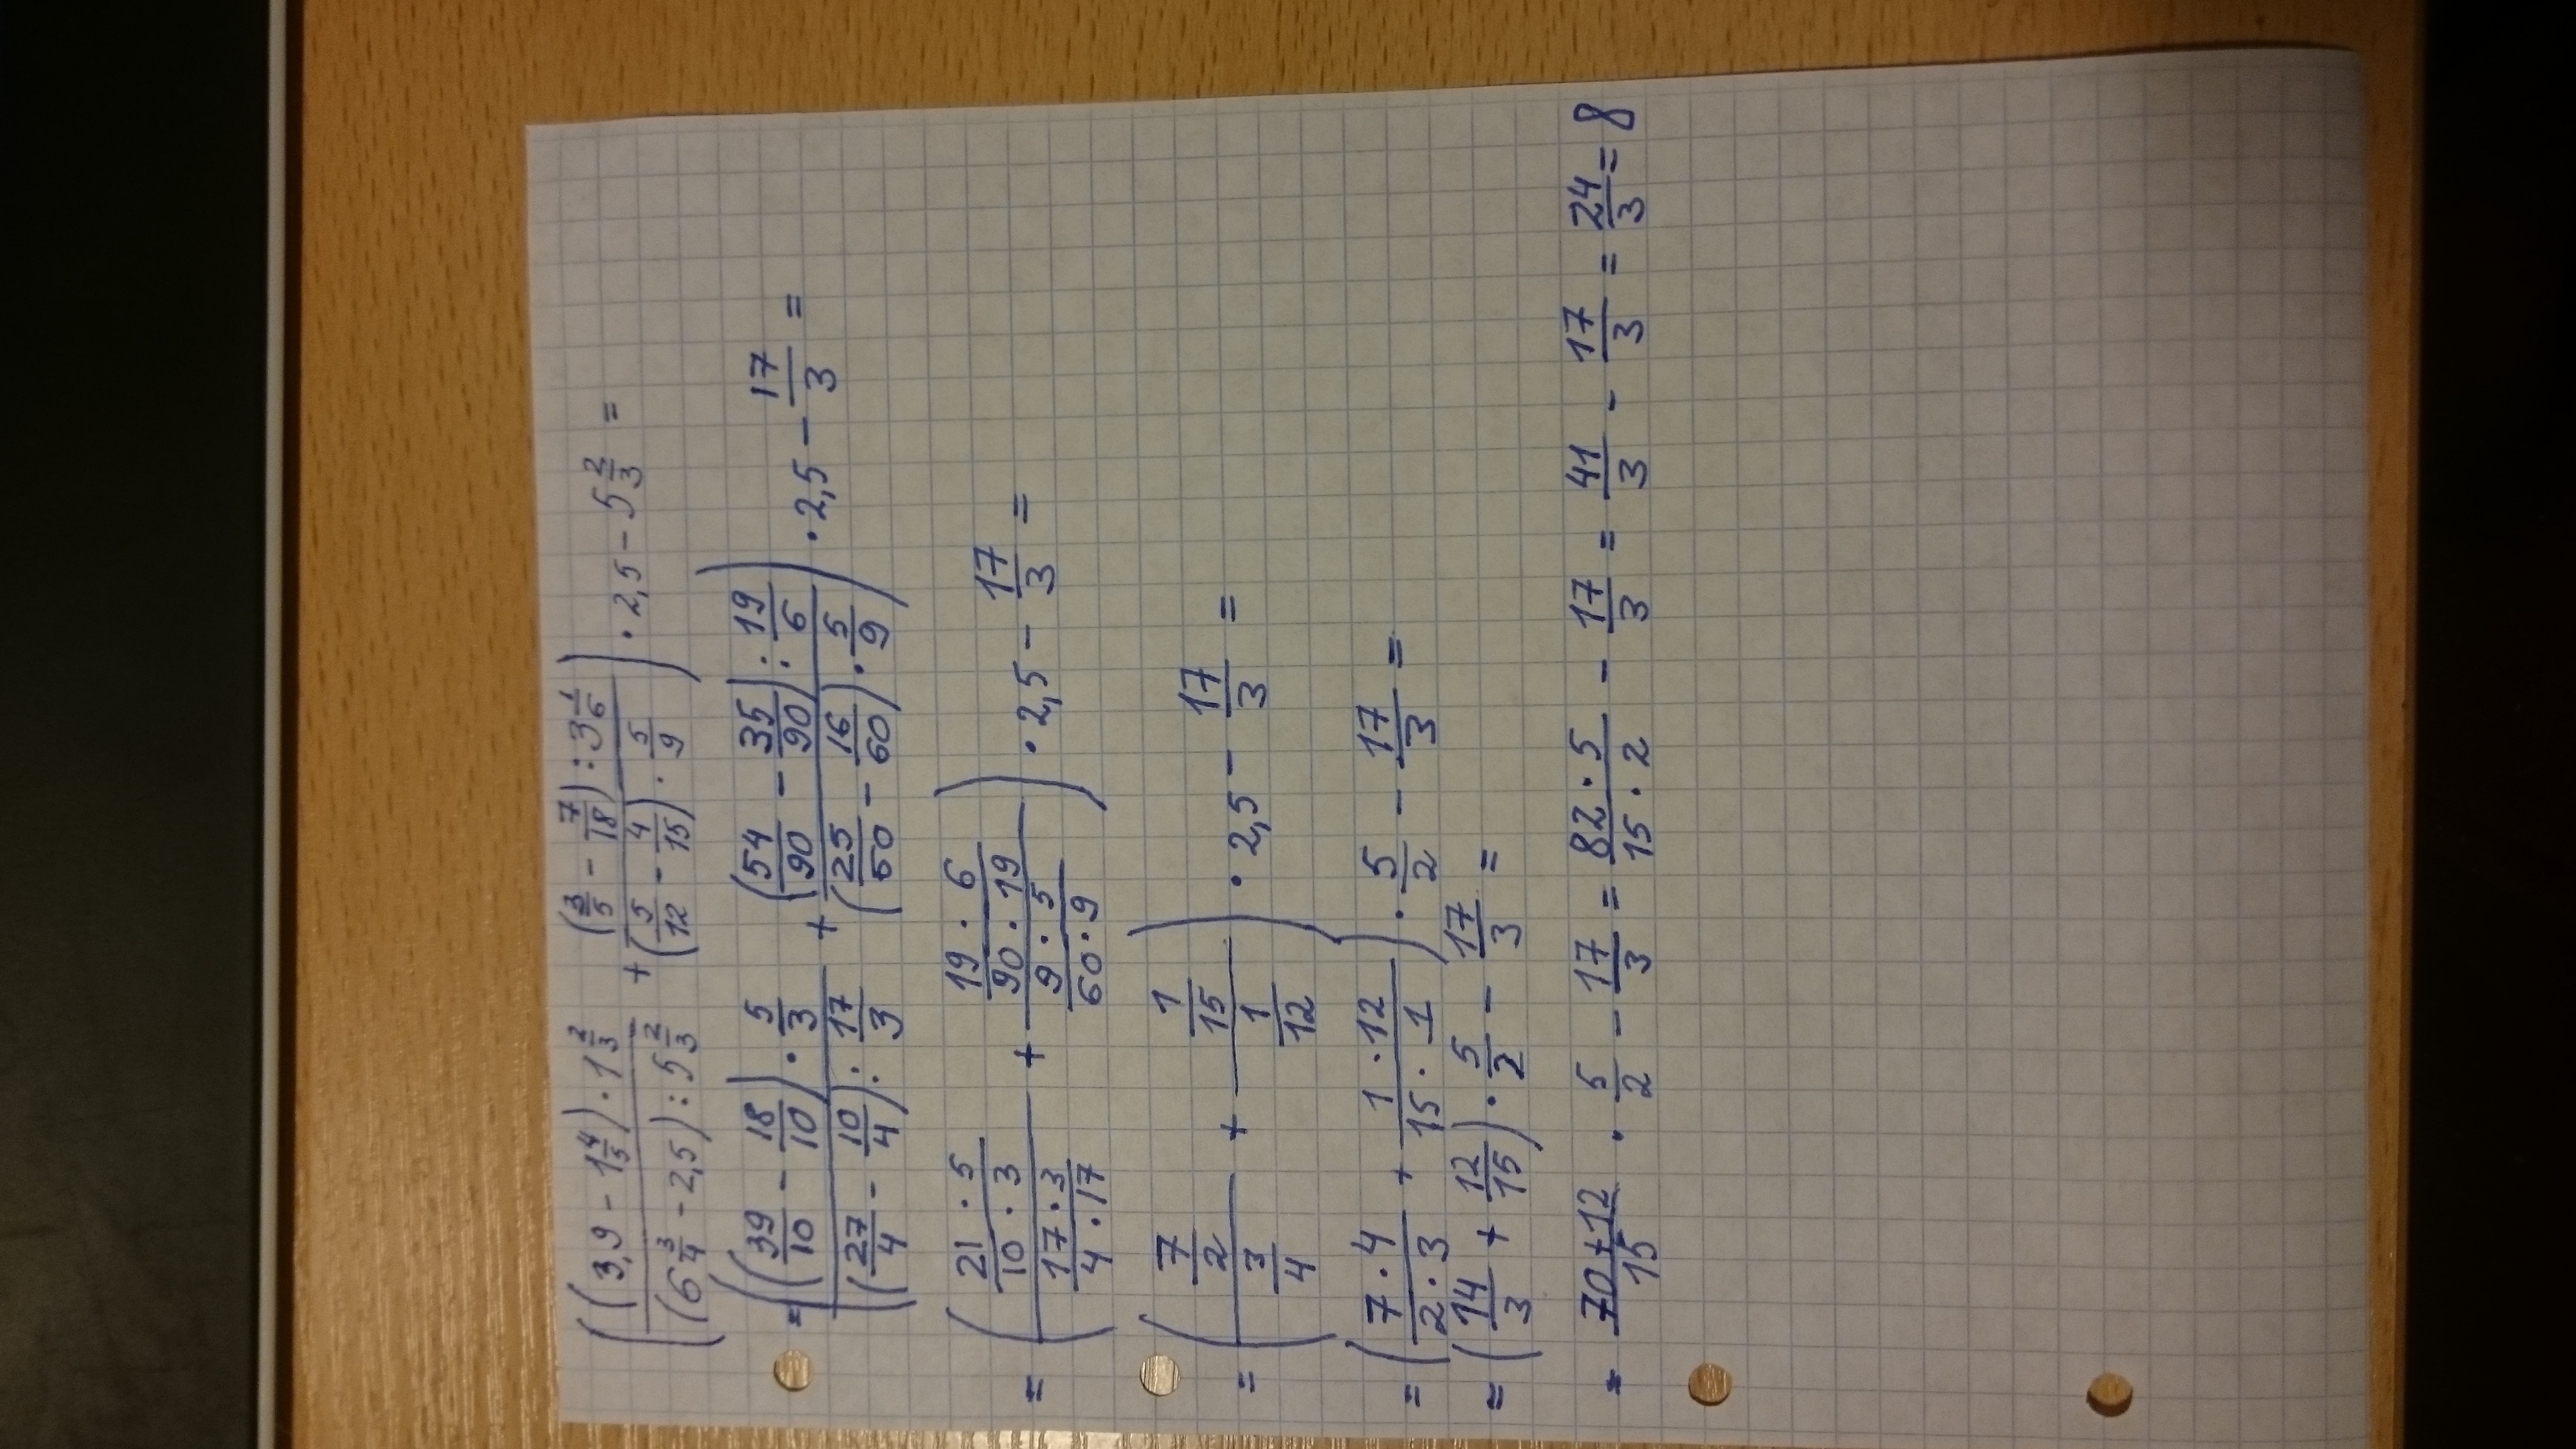 ((3,9 - 1 4/5) · 1 2/3)/((6 3/4 - 2,5) : 5 2/3) + ((3/5 - 7/18) : 3 1/6)/((5/12 - 4/15) · 5/9)) · 2,5 - 5 2/3 =
= (((39/10 - 18/10) · 5/3)/((27/4 - 10/4) : 17/3) + ((54/90 - 35/90) : 19/6)/((25/60 - 16/60) · 5/9)) · 2,5 - 17/3 =
= (((21 · 5)/(10 · 3))/((17 · 3)/(4 · 17)) + ((19 · 6)/(90 · 19))/((9 · 5)/(60 · 9))) · 2,5 - 17/3 =
= ((7/2)/(3/4) + (1/15)/(1/12)) · 2,5 - 17/3 =
= ((7 · 4)/(2 · 3) + (1 · 12)/(15 · 1)) · 5/2 - 17/3 =
= (14/3 + 12/15) · 5/2 - 17/3 =
= (70+12)/15 · 5/2 - 17/3 = (82 · 5)/(15 · 2) - 17/3 = 41/3 - 17/3 = 24/3 = 8